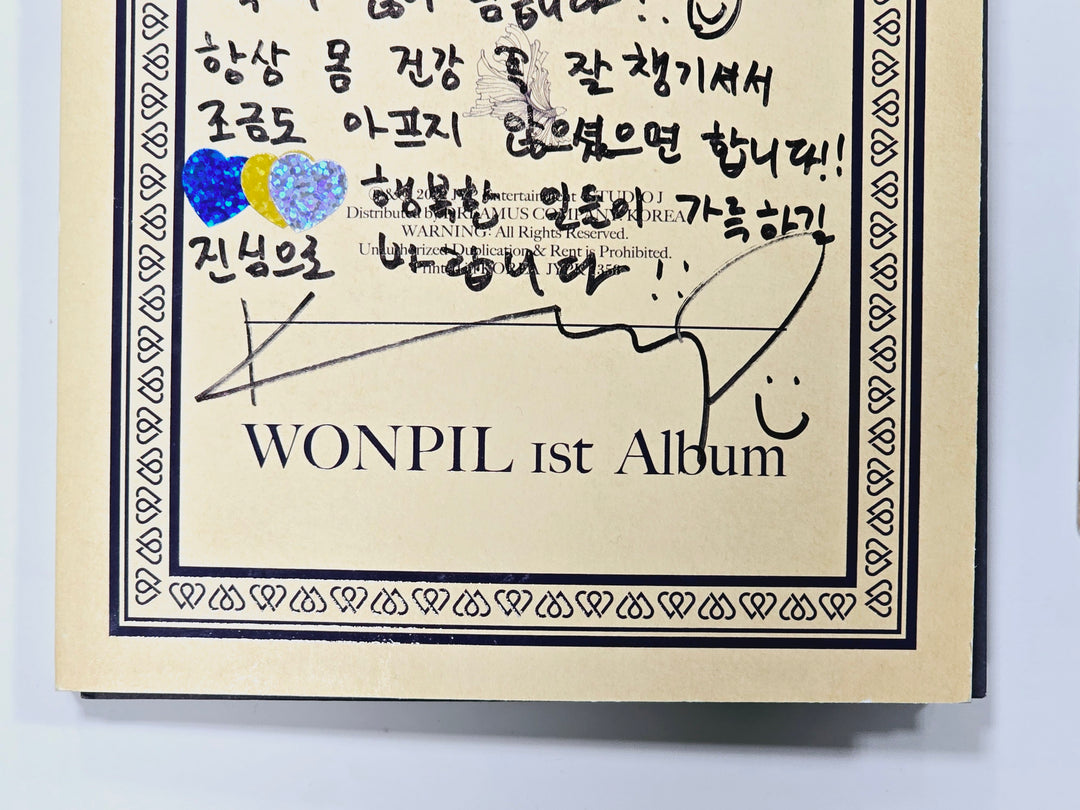 많이
항상 몸 건강 꼭 잘 챙기셔서
조금도 아프지 않으셨으면 합니다!!
행복한 일들이 가득하길
진심으로 바랍니다!!
Entertainment STUDIO J
Distributed by DREAMUS COMPANY, KOREA
WARNING: All Rights Reserved.
Unauthorized Duplication & Rent is Prohibited.
Printed in KOREA
WONPIL 1st Album